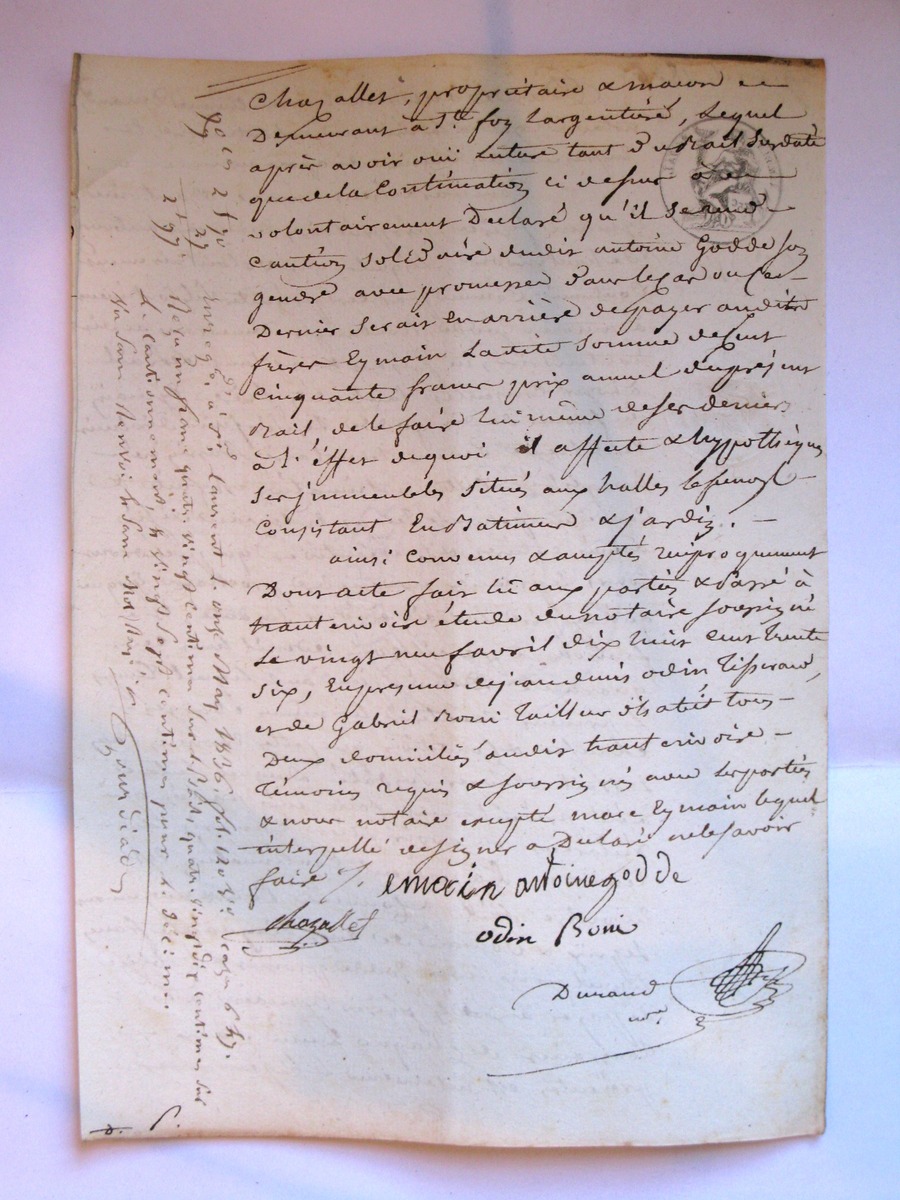 Chazallet, propriétaire & macon
Demeurant à St. foy Largentière, Lequel
après avoir oui lecture tant dudit Bail Susdaté
que de la Continuation ci dessus à
volontairement Declaré qu'il se rend
caution solidaire dudit antoine Godde son
gendre avec promesse dans le cas ou ce
Dernier serait En arrière de payer audits
frères Eymain La dite somme de Cent
cinquante francs prix annuel du présent
Bail, de le faire lui même de ses deniers
à l'effet de quoi il affecte & hypothèque
ses immeubles situés aux halles
Consistant En Batimens & jardin. —
ainsi convenus & acceptés réciproquement
Dont acte fait lu aux parties & passé à
haut rivoire étude du notaire soussigné
Le vingt neuf avril dix huit cent trente
six, En présence de jean denis odin Tisserand,
et de Gabriel Boni Tailleur d'habits tous
Deux domiciliés audit haut rivoire —
Témoins requis & soussignés avec les parties
& nous notaire excepté marc Eymain lequel
interpellé de signer a Declaré ne le savoir
faire /.
emain antoine godde
chazallet
odin Boni
Durand
nre.
2 f 90
27
Enregé. à St. Laurent le onze May 1836.
quatre vingt centimes sur
quatre vingt dix centimes sur
le cautionnement, & vingt sept centimes pour le décime.